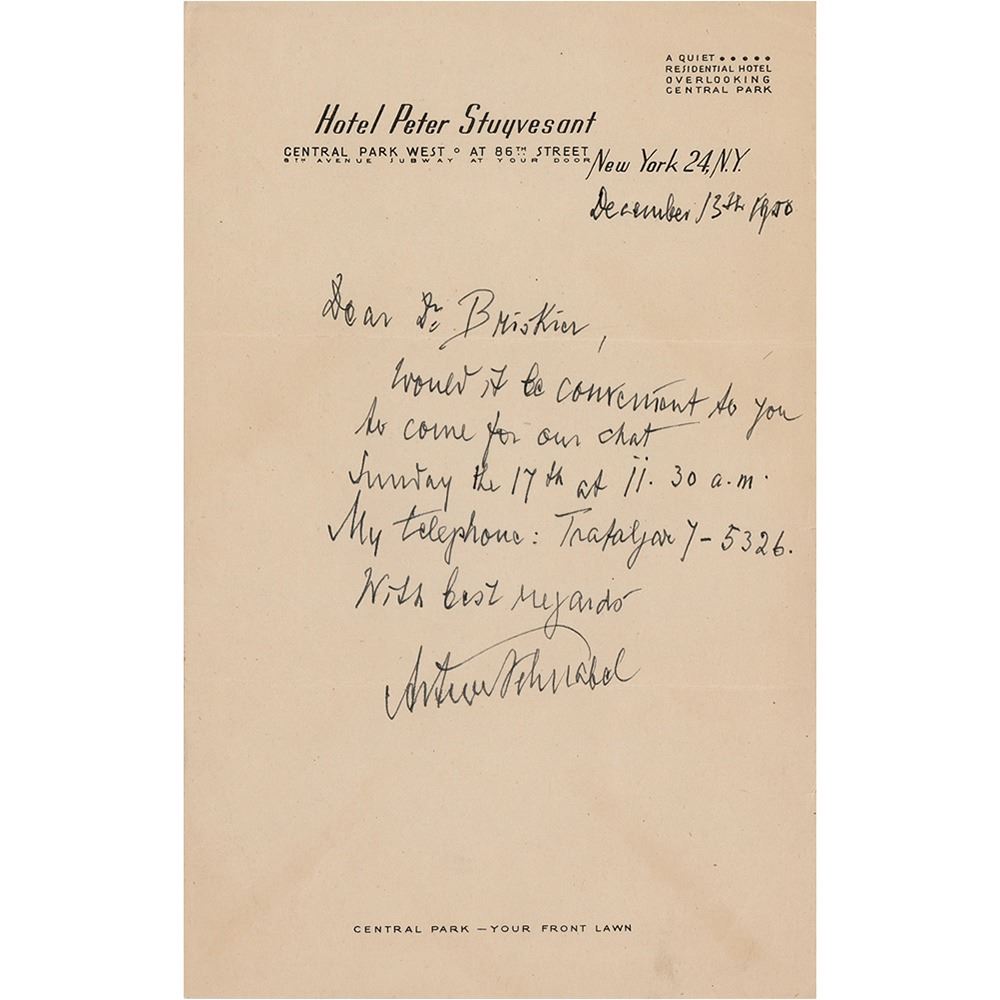 A QUIET • • • • •
RESIDENTIAL HOTEL
OVERLOOKING
CENTRAL PARK
Hotel Peter Stuyvesant
CENTRAL PARK WEST ° AT 86TH STREET
8TH AVENUE SUBWAY AT YOUR DOOR
New York 24, N.Y.
December 13th 1950
Dear Dr. Briskier,
Would it be convenient to you
to come for our chat
Sunday the 17th at 11.30 a.m.
My telephone: Trafalgar 7-5326.
With best regards
Artur Schnabel
CENTRAL PARK — YOUR FRONT LAWN